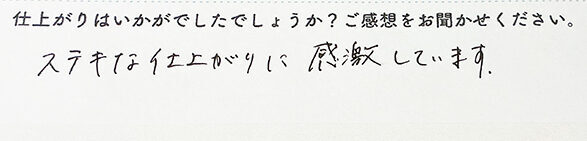 仕上がりはいかがでしたでしょうか？ご感想をお聞かせください。
ステキな仕上がりに感激しています.